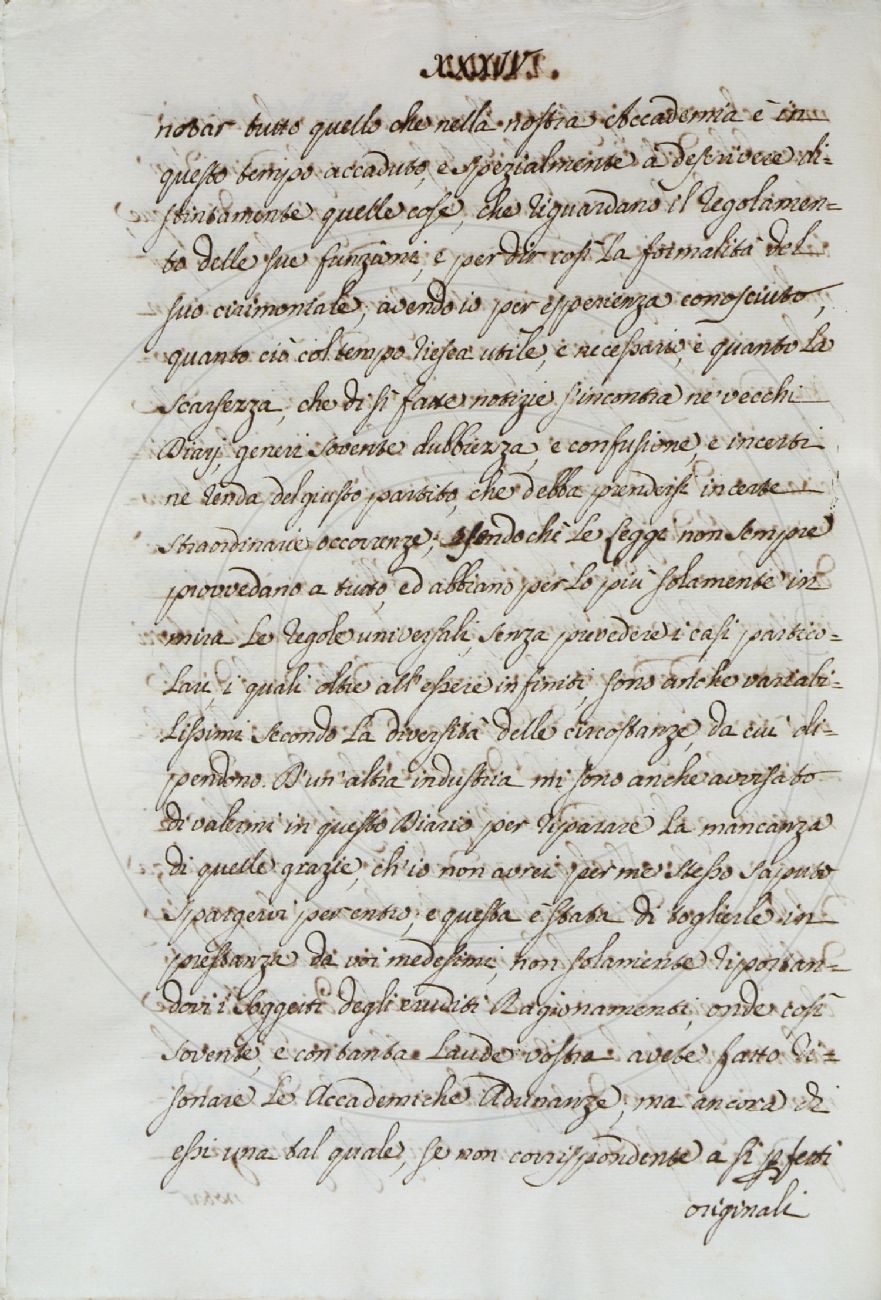 XXXXVI.
notar tutto quello che nella nostra Accademia è in
questo tempo accaduto, e spezialmente a descrivere di=
stintamente quelle cose, che riguardano il regolamen=
to delle sue funzioni, e per dir così la formalità del
suo cirimoniale, avendo io per esperienza conosciuto,
quanto ciò col tempo riesca utile, e necessario, e quanto la
scarsezza, che di sì fatte notizie s'incontra ne' vecchi
Diarj, generi sovente dubbiezza, e confusione, e incerti
ne renda del giusto partito, che debba prendersi in certe
straordinarie occorrenze; essendochè le Leggi non sempre
provvedano a tutto, ed abbiano per lo più solamente in
mira le regole universali, senza prevedere i casi partico=
lari, i quali oltre all'essere infiniti, sono anche variabi=
lissimi secondo la diversità delle circostanze, da cui di=
pendono. D'un'altra industria mi sono anche avvisato
di valermi in questo Diario per riparare la mancanza
di quelle grazie, ch'io non avrei per me stesso saputo
spargervi per entro, e questa è stata di toglierle in
prestanza da voi medesimi, non solamente riportan=
dovi i soggetti degli eruditi Ragionamenti, onde così
sovente, e con tanta laude vostra avete fatto ri=
sonare le Accademiche Adunanze, ma ancora di
essi una tal quale, se non corrispondente a sì pfetti
originali